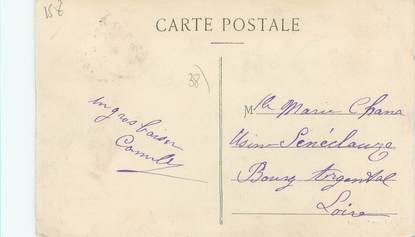 15€
CARTE POSTALE
38)
un gros baiser
Camille
Mlle Marie Chana
Usine Sénéclauze
Bourg Argental
Loire